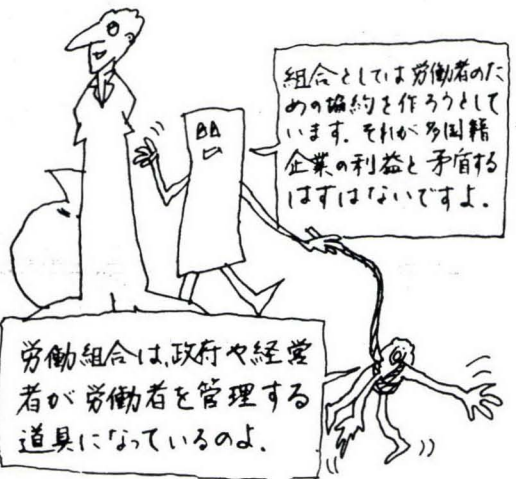 組合としては労働者のた
めの協約を作ろうとして
います．それが多国籍
企業の利益と矛盾する
はずはないですよ．
労働組合は、政府や経営
者が労働者を管理する
道具になっているのよ．